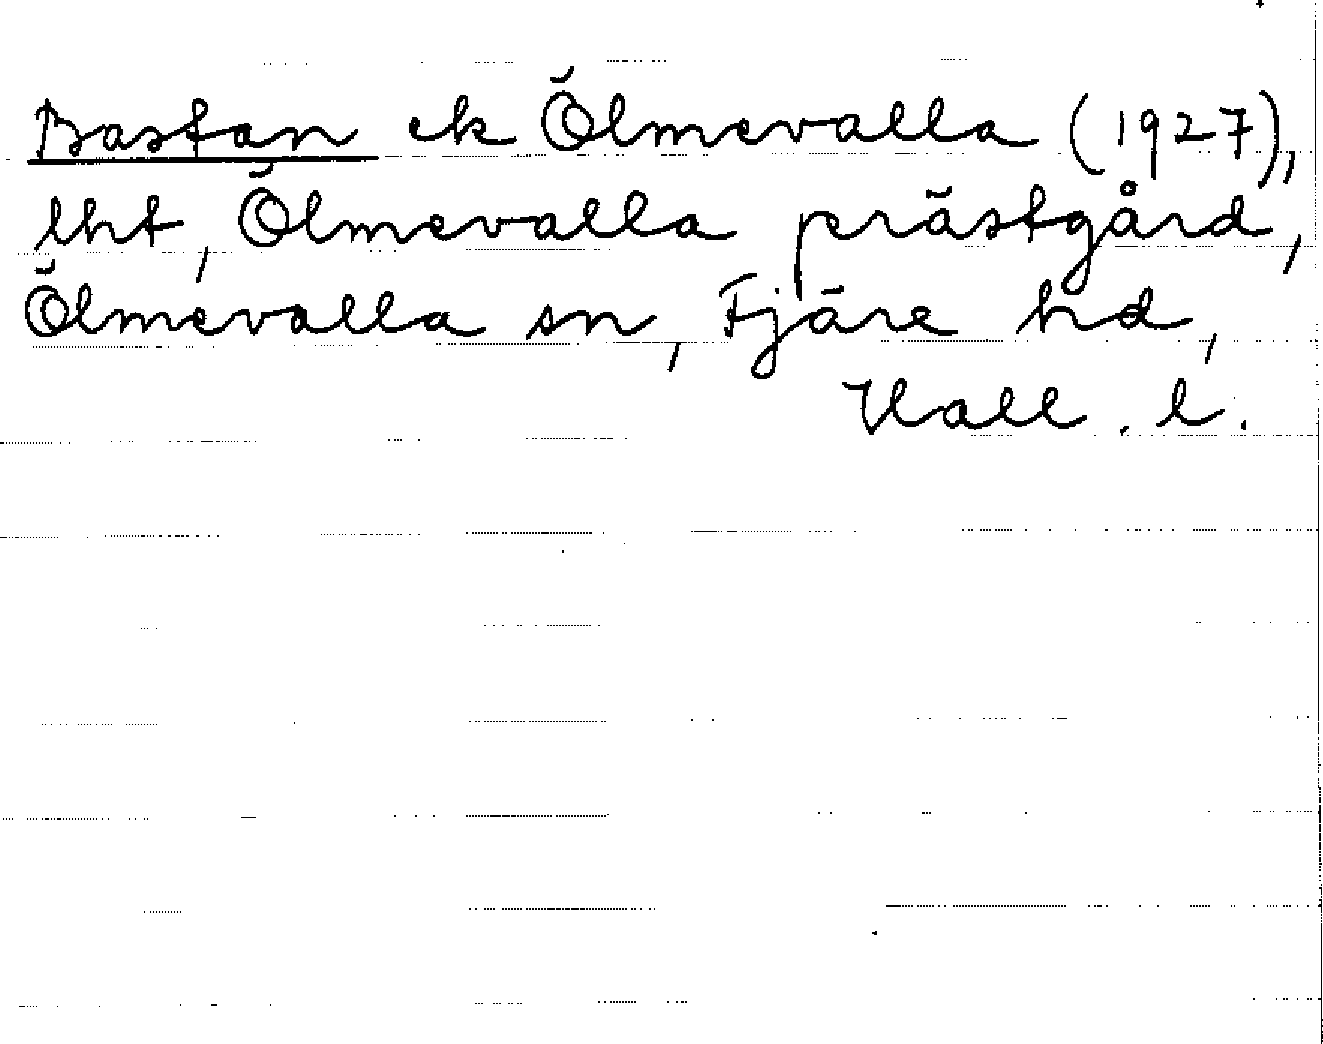 Bastan ek Ölmevalla (1927),
lht, Ölmevalla prästgård,
Ölmevalla sn, Fjäre hd,
Hall. l.